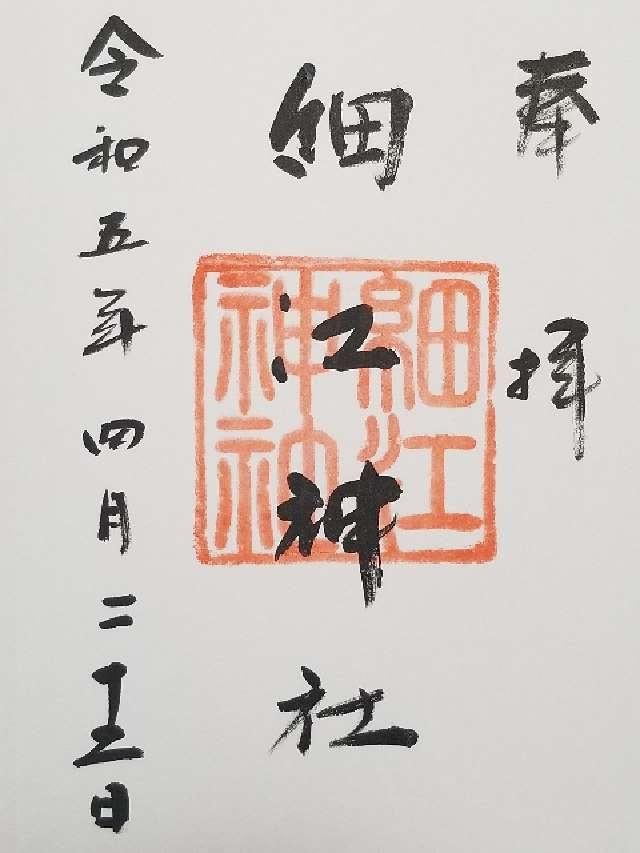 奉拝
細江神社
細江
神社
令和五年四月二十三日